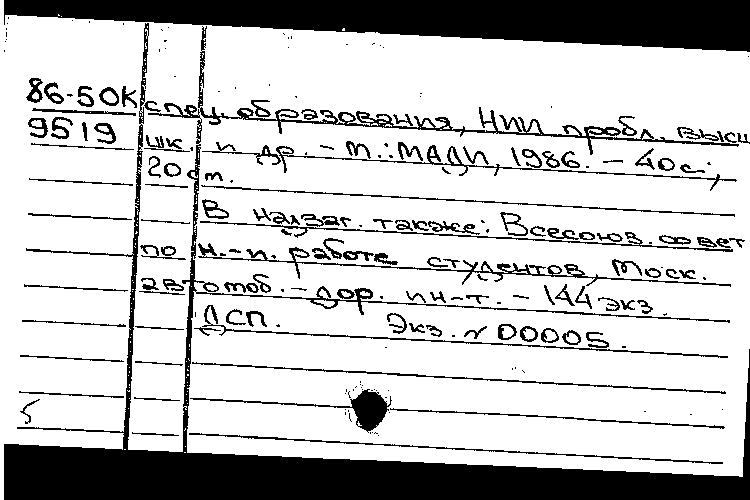 86-50К спец. образования, НИИ пробл. высш.
9519 шк. и др. - М.: МАДИ, 1986. - 40 с.;
20 см.
В надзаг. также: Всесоюз. совет
по н.-и. работе студентов, Моск.
автомоб.-дор. ин-т. - 144 экз.
ДСП. Экз. № 00005.
5